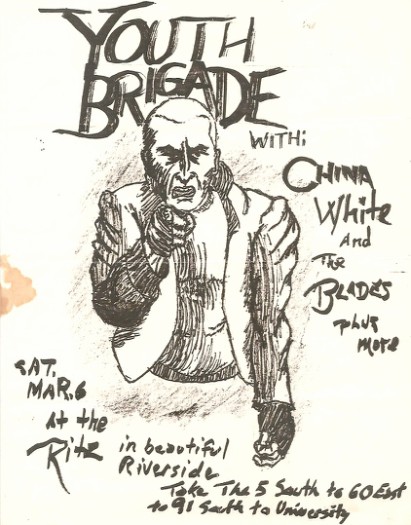 YOUTH
BRIGADE
WITH:
CHINA
White
And
The
BLADES
plus
more
SAT.
MAR. 6
At the
Ritz in beautiful
Riverside
Take The 5 South to 60 East
to 91 South to University